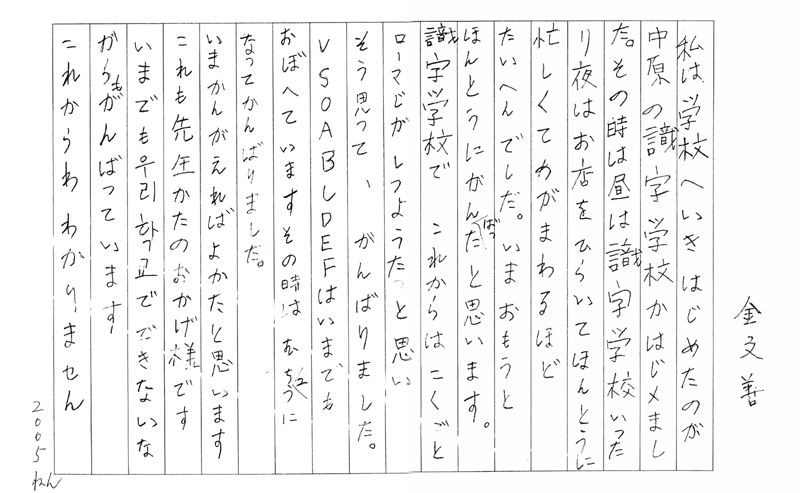 金文善
私は学校へいきはじめたのが
中原の識字学校かはじメまし
た。その時は昼は識字学校いった
り夜はお店をひらいてほんとうに
忙しくてめがまわるほど
たいへんでしだ。いまおもうと
ほんとうにがんばったと思います。
識字学校で これからはこくごと
ローマじがしつようたっと思い
そう思って、がんばりました。
VSOABLDEFはいまでも
おぼへていますその時は むちゅうに
なってかんばりました。
いまかんがえればよかたと思います
これも先生かたのおかげ様です
いまでも우리학교でできないな
がらもがんばっています
これからわわかりません
2005ねん